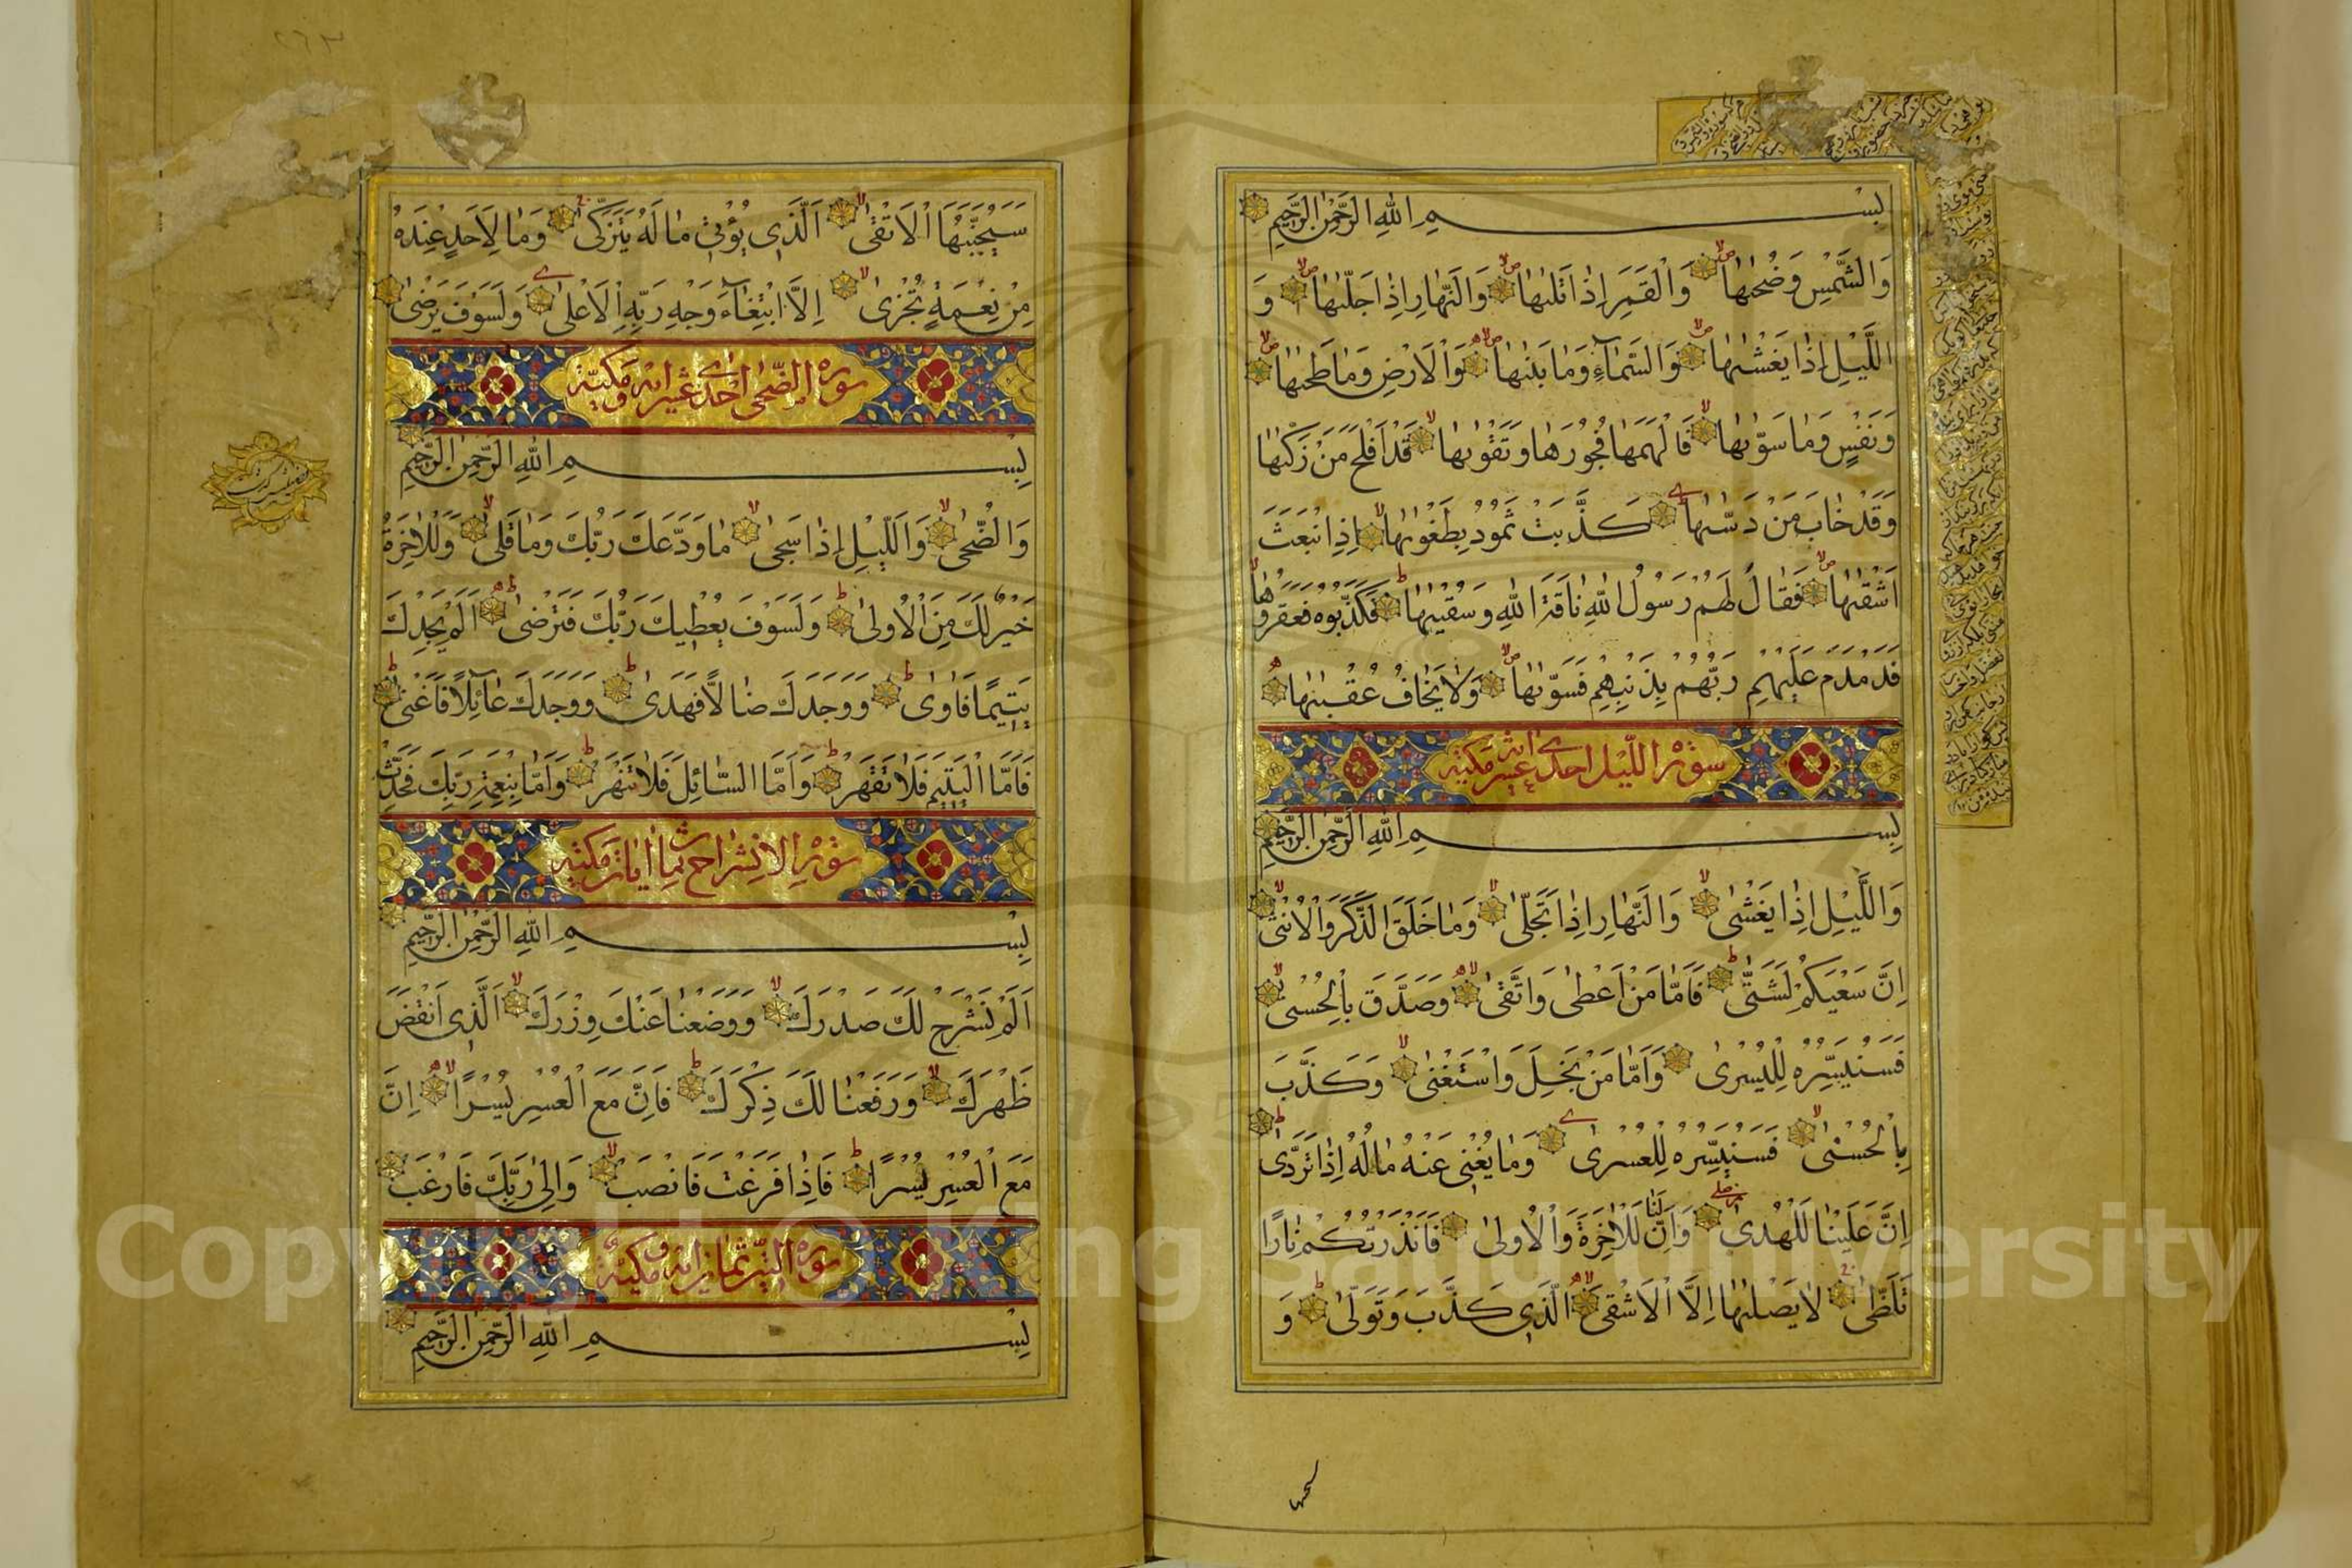 بِسْمِ اللهِ الرَّحْمٰنِ الرَّحِيمِ
وَالشَّمْسِ وَضُحٰيهَا وَالْقَمَرِ اِذَا تَلٰيهَا وَالنَّهَارِ اِذَا جَلّٰيهَا وَ
اللَّيْلِ اِذَا يَغْشٰيهَا وَالسَّمَآءِ وَمَا بَنٰيهَا وَالْاَرْضِ وَمَا طَحٰيهَا
وَنَفْسٍ وَمَا سَوّٰيهَا فَاَلْهَمَهَا فُجُورَهَا وَتَقْوٰيهَا قَدْ اَفْلَحَ مَنْ زَكّٰيهَا
وَقَدْ خَابَ مَنْ دَسّٰيهَا كَذَّبَتْ ثَمُودُ بِطَغْوٰيهَا اِذِ انْبَعَثَ
اَشْقٰيهَا فَقَالَ لَهُمْ رَسُولُ اللهِ نَاقَةَ اللهِ وَسُقْيٰهَا فَكَذَّبُوهُ فَعَقَرُوهَا
فَدَمْدَمَ عَلَيْهِمْ رَبُّهُمْ بِذَنْبِهِمْ فَسَوّٰيهَا وَلَا يَخَافُ عُقْبٰيهَا
سورة الليل احدى عشر اية مكية
بِسْمِ اللهِ الرَّحْمٰنِ الرَّحِيمِ
وَاللَّيْلِ اِذَا يَغْشٰى وَالنَّهَارِ اِذَا تَجَلّٰى وَمَا خَلَقَ الذَّكَرَ وَالْاُنْثٰى
اِنَّ سَعْيَكُمْ لَشَتّٰى فَاَمَّا مَنْ اَعْطٰى وَاتَّقٰى وَصَدَّقَ بِالْحُسْنٰى
فَسَنُيَسِّرُهُ لِلْيُسْرٰى وَاَمَّا مَنْ بَخِلَ وَاسْتَغْنٰى وَكَذَّبَ
بِالْحُسْنٰى فَسَنُيَسِّرُهُ لِلْعُسْرٰى وَمَا يُغْنِى عَنْهُ مَالُهُ اِذَا تَرَدّٰى
اِنَّ عَلَيْنَا لَلْهُدٰى وَاِنَّ لَنَا لَلْاٰخِرَةَ وَالْاُولٰى فَاَنْذَرْتُكُمْ نَارًا
تَلَظّٰى لَا يَصْلٰيهَا اِلَّا الْاَشْقَى الَّذِى كَذَّبَ وَتَوَلّٰى وَ
سيجنبها
سَيُجَنَّبُهَا الْاَتْقٰى اَلَّذِى يُؤْتِى مَا لَهُ يَتَزَكّٰى وَمَا لِاَحَدٍ عِنْدَهُ
مِنْ نِعْمَةٍ تُجْزٰى اِلَّا ابْتِغَآءَ وَجْهِ رَبِّهِ الْاَعْلٰى وَلَسَوْفَ يَرْضٰى
سورة الضحى احدى عشر اية وهى مكية
بِسْمِ اللهِ الرَّحْمٰنِ الرَّحِيمِ
وَالضُّحٰى وَاللَّيْلِ اِذَا سَجٰى مَا وَدَّعَكَ رَبُّكَ وَمَا قَلٰى وَلَلْاٰخِرَةُ
خَيْرٌ لَكَ مِنَ الْاُولٰى وَلَسَوْفَ يُعْطِيكَ رَبُّكَ فَتَرْضٰى اَلَمْ يَجِدْكَ
يَتِيمًا فَاٰوٰى وَوَجَدَكَ ضَالًّا فَهَدٰى وَوَجَدَكَ عَآئِلًا فَاَغْنٰى
فَاَمَّا الْيَتِيمَ فَلَا تَقْهَرْ وَاَمَّا السَّائِلَ فَلَا تَنْهَرْ وَاَمَّا بِنِعْمَةِ رَبِّكَ فَحَدِّثْ
سورة الانشراح ثمان ايات مكية
بِسْمِ اللهِ الرَّحْمٰنِ الرَّحِيمِ
اَلَمْ نَشْرَحْ لَكَ صَدْرَكَ وَوَضَعْنَا عَنْكَ وِزْرَكَ الَّذِى اَنْقَضَ
ظَهْرَكَ وَرَفَعْنَا لَكَ ذِكْرَكَ فَاِنَّ مَعَ الْعُسْرِ يُسْرًا اِنَّ
مَعَ الْعُسْرِ يُسْرًا فَاِذَا فَرَغْتَ فَانْصَبْ وَاِلٰى رَبِّكَ فَارْغَبْ
سورة التين ثمان اية وهى مكية
بِسْمِ اللهِ الرَّحْمٰنِ الرَّحِيمِ
٢٦٣
Copyright © King Saud University
1957